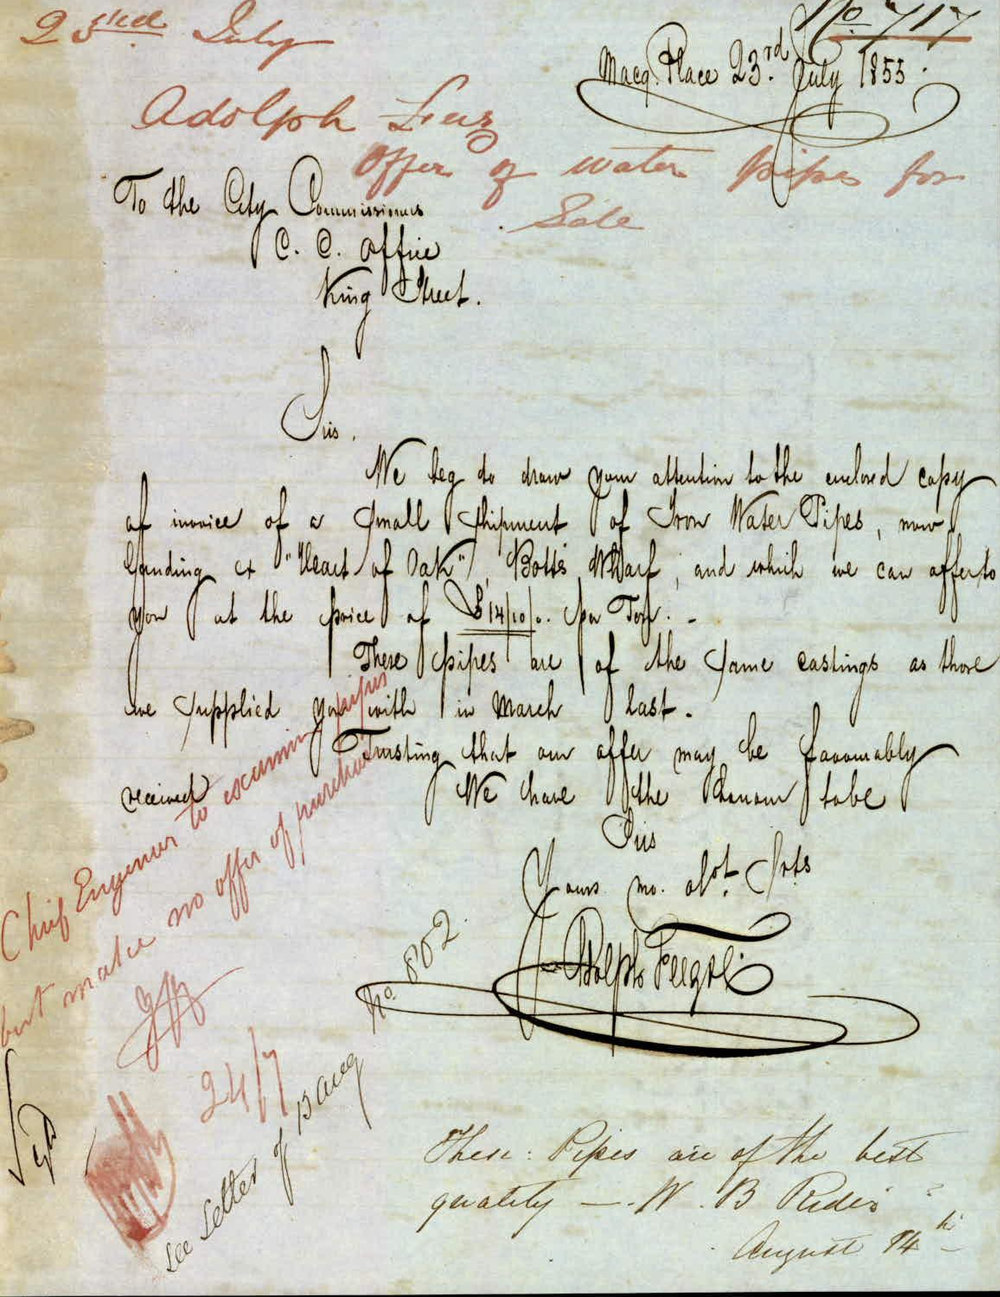 23rd July
No. 717
Macq. Place 23rd July 1855.
Adolph
Offer of water pipes for
Sale
To the City Commissioners
C. C. Office
King Street.
Sirs.
We beg to draw your attention to the enclosed copy
of invoice of a small shipment of Iron Water Pipes, now
landing ex "Heart of Oak", Botts Wharf, and which we can offer to
you at the price of £14/10/0. per Ton. -
These pipes are of the same castings as those
we supplied you with in March last.
Trusting that our offer may be favourably
received
We have the honour to be
Sirs
Yours mo. obt. Srts
Adolph
No. 802.
Chief Engineer to examine pipes
but make no offer of purchase
24/7
See Letter of 13 Aug
These Pipes are of the best
quality — W. B Rider
August 14th